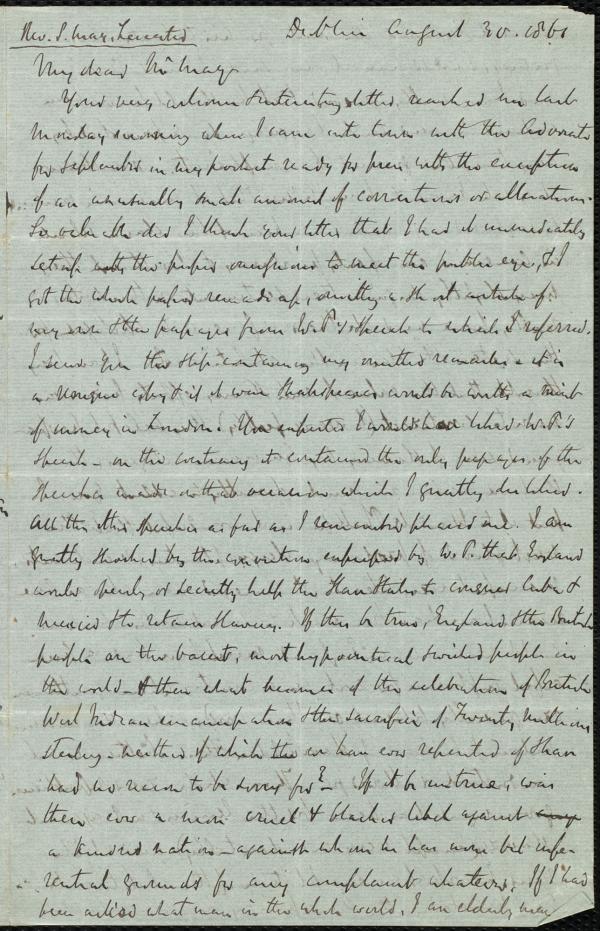 Rev. S. May, Leicester
Dublin August 30. 1861
My dear Mr May
Your very welcome & interesting letter reached me last
Monday morning when I came into town with the Advocate
for September in my pocket ready for press with the exception
of an unusually small amount of corrections or alterations.
So valuable did I think your letter that I had it immediately
set up with the paper to meet the public eye, & I
got the whole paper remade up, omitting a short article of
my own & the passages from W.P.'s speech to which I referred.
I send you the slip containing my omitted remarks - it is
a unique copy & if it were Shakespeare's would be worth a mint
of money in London. You expected I would have liked W.P.'s
speech - on the contrary it contained the only passages of the
speeches made on that occasion which I greatly disliked.
All the other speeches as far as I remember pleased me. I am
greatly shocked by the conviction expressed by W.P. that England
would openly or secretly help the Slave States to conquer Cuba &
Mexico & to retain Slavery. If this be true, England & the British
people are the basest, most hypocritical people in
the world - & then what becomes of the celebration of British
West Indian emancipation & the sacrifice of Twenty millions
sterling - neither of which we have ever repented of & have
had no reason to be sorry for? - If it be untrue, was
there ever a more cruel & blacker libel against
a kindred nation - against whom he has none but infe-
rential grounds for any complaint whatever. If I had
been asked what man in the whole world, I an elderly man